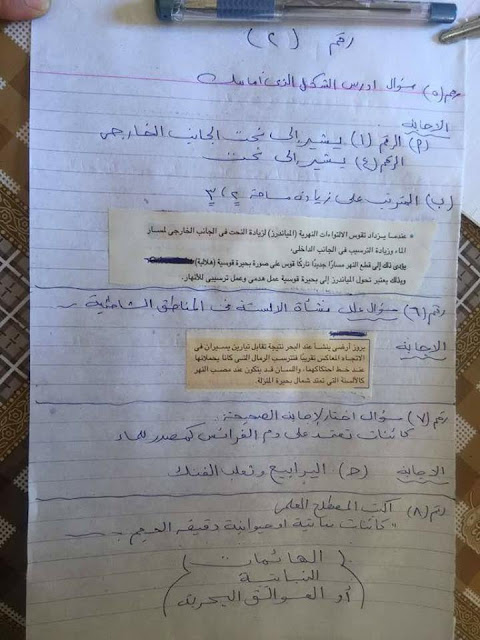 رقم (٢)
رقم (٥) سؤال ادرس الشكل الذى أمامك
الإجابة
(أ) الرقم (١) يشير إلى نحت الجانب الخارجى
الرقم (٤) يشير إلى نحت
(ب) المترتب على زيادة مساحة ٢، ٣
* عندما يزداد تقوس الالتواءات النهرية (المياندرز) لزيادة النحت في الجانب الخارجي لمسار
الماء وزيادة الترسيب في الجانب الداخلي.
يؤدي ذلك إلى قطع النهر مسارًا جديدًا تاركًا قوس على صورة بحيرة قوسية (هلالية)
وبذلك يعتبر تحول المياندرز إلى بحيرة قوسية عمل هدمي وعمل ترسيبي للأنهار.
رقم (٦) سؤال علل نشأة الألسنة فى المناطق الشاطئية
الإجابة
بروز أرضي ينشأ عند البحر نتيجة تقابل تيارين يسيران في
الاتجاه المعاكس تقريبًا فتترسب الرمال التي كانا يحملانها
عند خط احتكاكهما، واللسان قد يتكون عند مصب النهر
كالألسنة التي تمتد شمال بحيرة المنزلة.
رقم (٧) سؤال اختار الإجابة الصحيحة:
كائنات تعتمد على دم الفرائس كمصدر للماء
الإجابة (حـ) اليرابيع وثعلب الفنك
رقم (٨) اكتب المصطلح العلمى
" كائنات نباتية أو حيوانية دقيقة الحجم
الهائمات
النباتية
أو العوالق البحرية